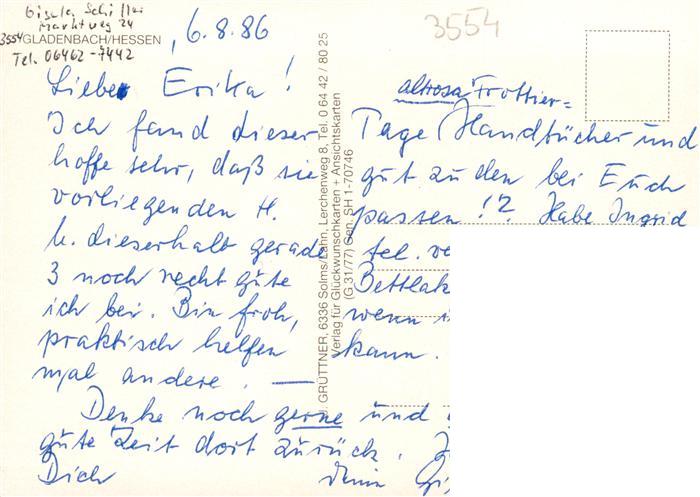 Gisela Schiller
Marktweg 24
3554 GLADENBACH/HESSEN
Tel. 06462-7442
6.8.86
3554
Liebe Erika!
Ich fand dieser Tage altrosa Frottier=
Handtücher und
hoffe sehr, daß sie gut zu den bei Euch
vorliegenden H. passen!? Habe Ingrid
h. dieserhalb gerade tel.
3 noch recht gute Bettlak
ich bei. Bin froh, wenn
praktisch helfen kann.
mal andere. —
Denke noch gerne und
gute Zeit dort zurück.
Dich deine Gi
GRÜTTNER, 6336 Solms/Lahn, Lerchenweg 8, Tel. 0 64 42 / 80 25
Verlag für Glückwunschkarten + Ansichtskarten
(G 31/77) Gen. SH 1-707/46